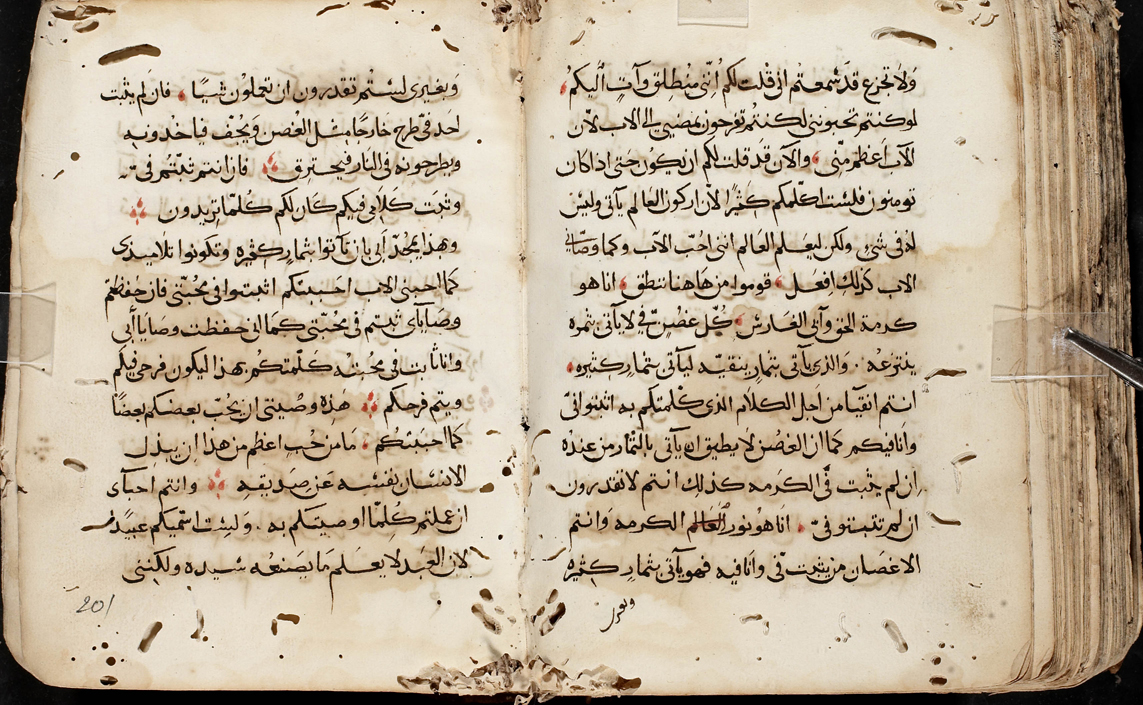 ولا تجزع قد سمعتم اني قلت لكم انني منطلق وآت اليكم
لو كنتم تحبونني لكنتم تفرحون بمضيي الى الاب لان
الآب اعظم مني والآن قد قلت لكم ان يكون حتى اذا كان
تومنون فلست اكلمكم كثيرًا لان اركون العالم يأتي وليس
له في شي ولكن ليعلم العالم انني احب الآب وكما وصاني
الاب كذلك افعل قوموا من هاهنا ننطلق انا هو
كرمة الحق وآبي الغارس كل غصن فيّ لا يأتي بثمره
ينتزعه والذي يأتي بثمار ينقيه ليأتي بثمار كثيره
انتم انقيا من اجل الكلام الذي كلمتكم به اثبتوا فيّ
وانا فيكم كما ان الغصن لا يطيق ان يأتي بالثمار من عنده
ان لم يثبت في الكرمه كذلك انتم لا تقدرون
ان لم تثبتو فيّ انا هو نور العالم الكرمه وانتم
الاغصان من يثبت فيّ وانا فيه فهو يأتي بثمار كثيره
وبغيري
وبغيري لستم تقدرون ان تعملون شيًا فان لم يثبت
احد فيّ طرح خارجًا مثل الغصن ويجف فياخدونه
ويطرحونه في النار فيحترق فان انتم ثبتم فيّ
وثبت كلامي فيكم كان لكم كلما تريدون
وبهذا يمجد آبي بان تأتوا بثمار كثيره وتكونوا تلاميذي
كما احبني الاب احببتكم اثبتوا في محبتي فان حفظتم
وصاياي ثبتم في محبتي كما اني حفظت وصايا أبي
وانا ثابت في محبته كلمتكم بهذا ليكون فرحي فيكم
ويتم فرحكم هذه وصيتي ان يحب بعضكم بعضًا
كما احببتكم ما من حب اعظم من هذا ان يبذل
الانسان نفسه عن صديقه وانتم احباي
ان عملتم كلما اوصيتكم به وليت اسميكم عبيد
لان العبد لا يعلم ما يصنعه سيده ولكنني
201